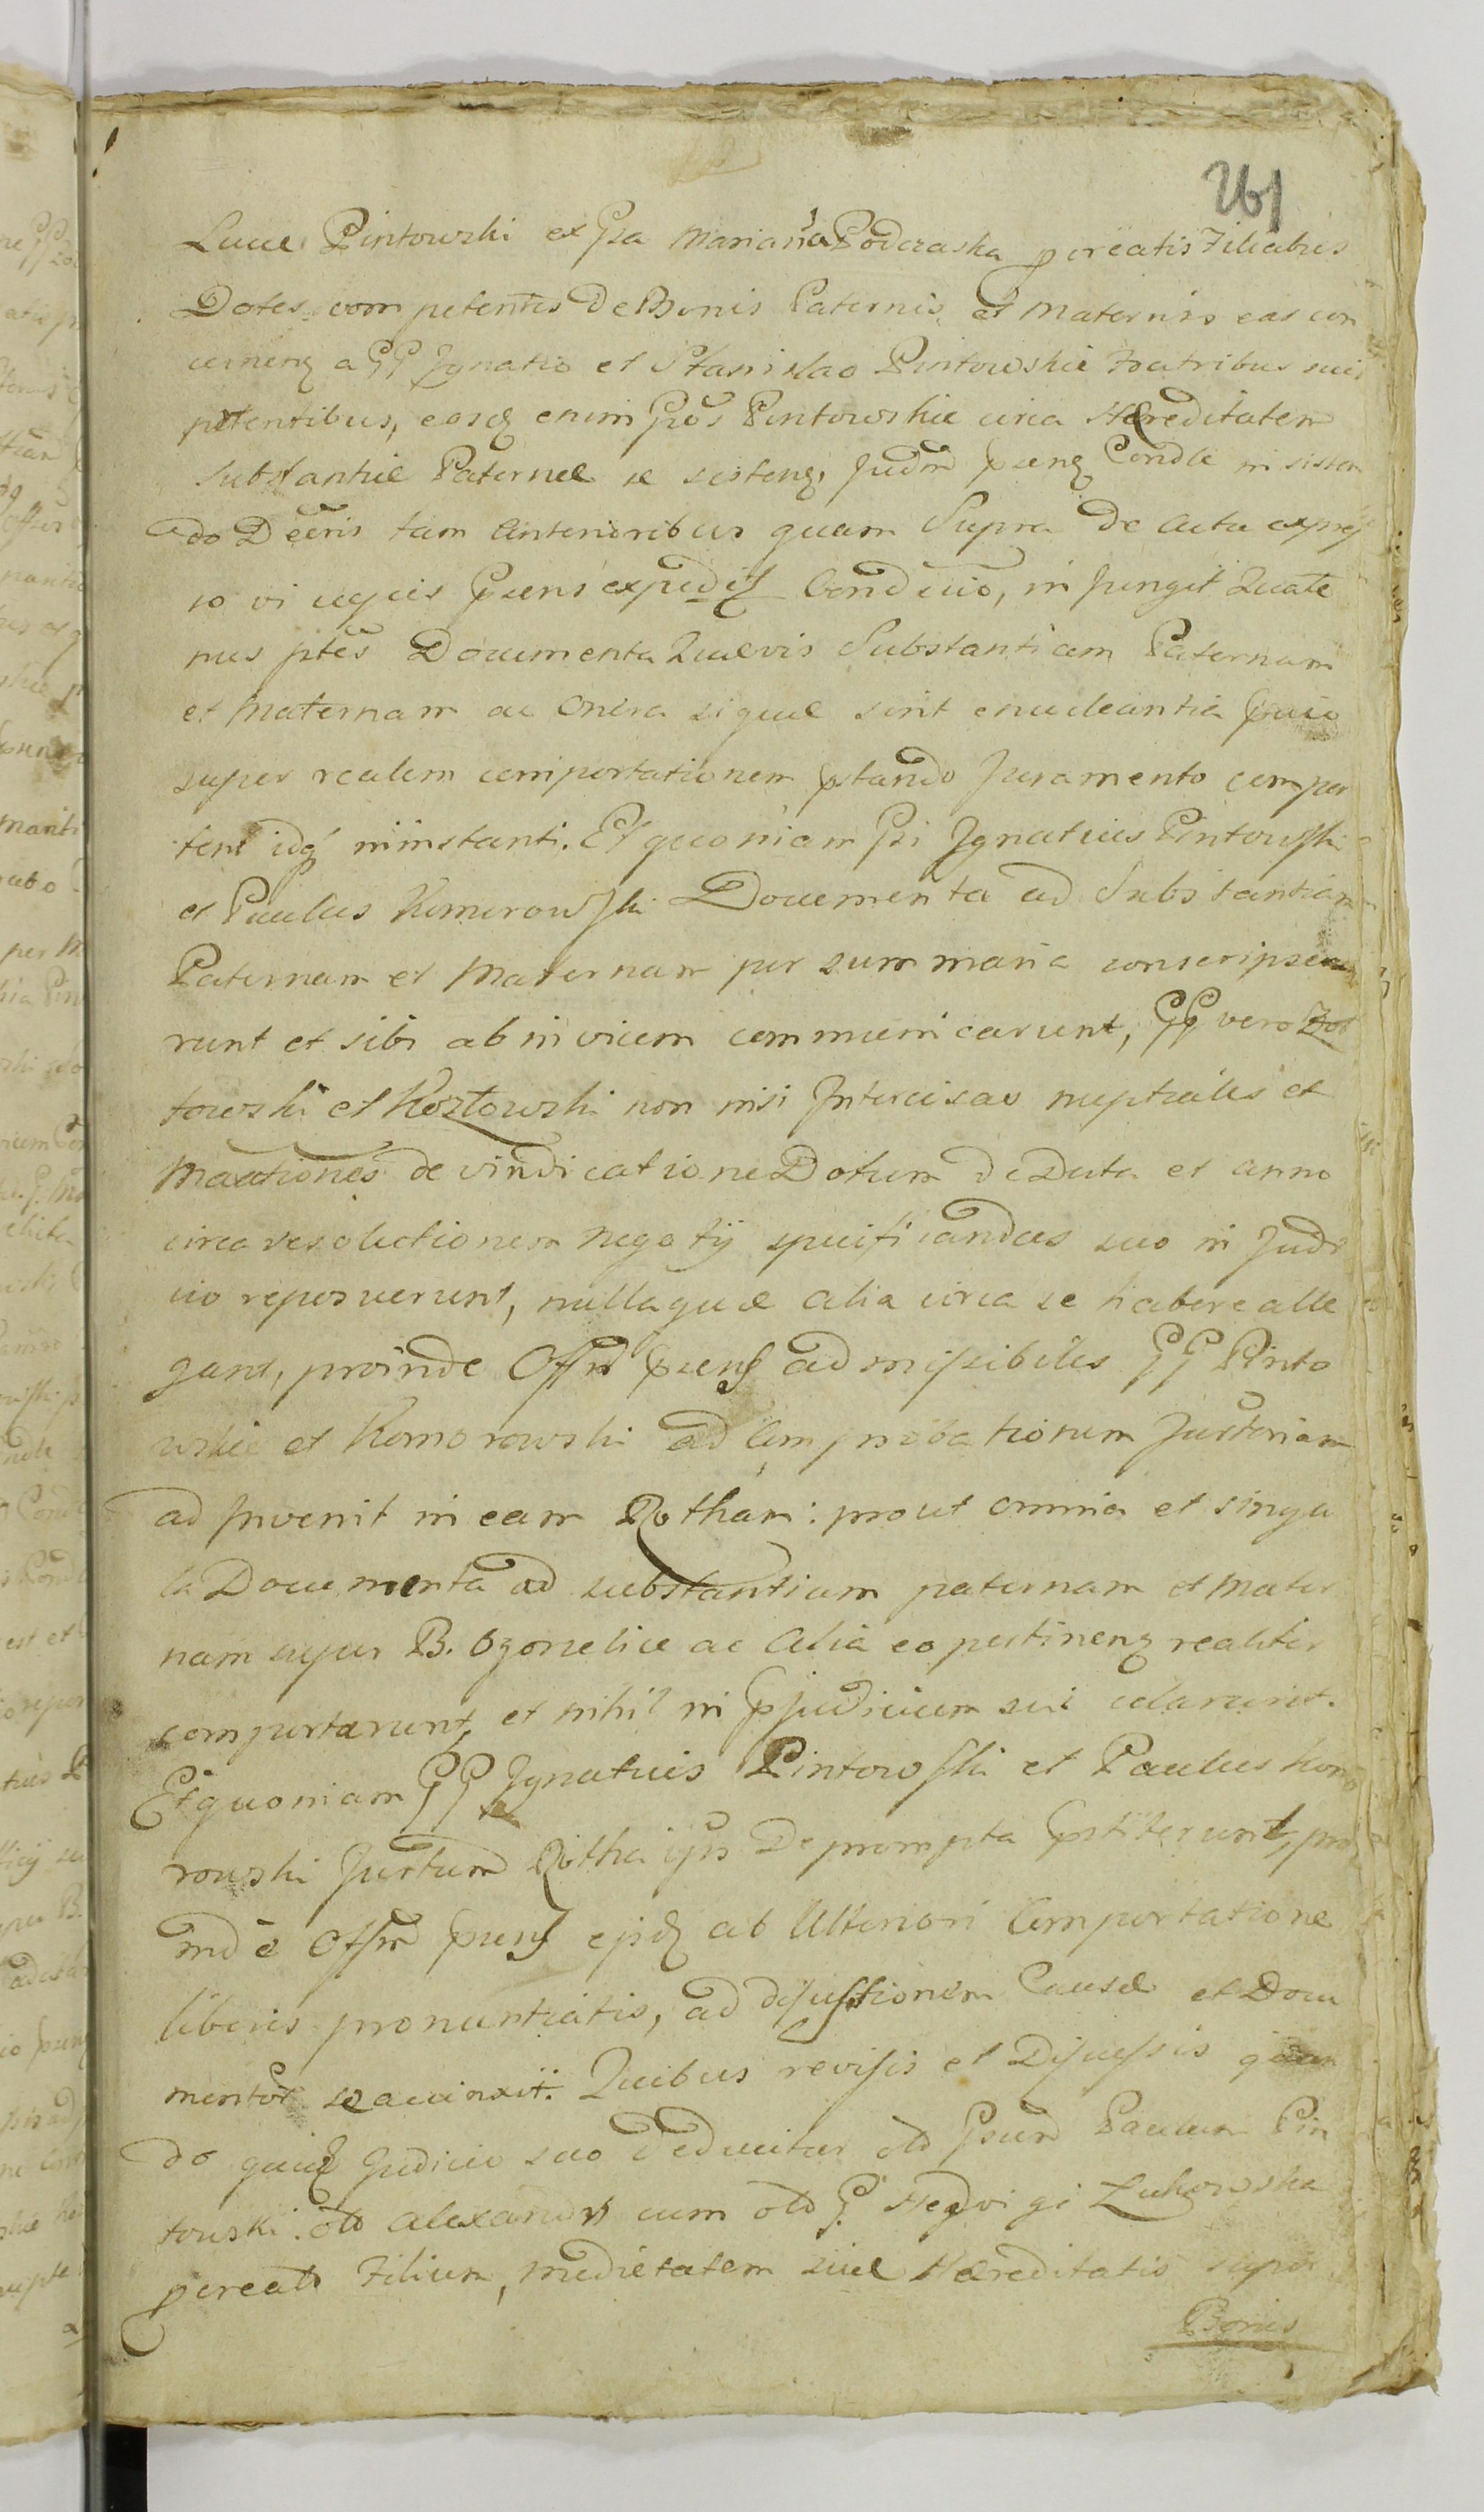 261
Lucae Pintowski ex Gsa Marianna Podczaska pcreatis Filiabus
Dotes competentes de Bonis Paternis et Maternis eas con
cernenq a GG Ignatio et Stanislao Pintowskie Fratribus suis
petentibus, eosq enim Gsos Pintowskie circa Haereditatem
Substantiae Paternae se sistenq, Judm psenq Condle insisten
do Decris tam anterioribus quam Supra de actu expres
so vi cujus psens expedit Condictio, injungit Quate
nus ptes Documenta Quaevis Substantiam Paternam
et Maternam ac Onera si quae sint enucleantia pvio
super realem comportationem pstando Juramento compor
tent idq in instanti. Et quoniam Gsi Ignatius Pintowski
et Paulus Komorowski Documenta ad Substantiam
Paternam et Maternam per summaria conscripse
runt et sibi ab invicem communicarunt, GG vero Zol
towski et Kozłowski non nisi Intercisas nuptiales et
Mactiones de vindicatione Dotum de Data et anno
circa resolutionem negotij specificandas suo in Judi
cio reposuerunt, nullaquae alia circa se habere alle
gant, proinde Offm psens admissibiles GG Pinto
wskie et Komorowski ad Comprobationem Jurtoriam
adinvenit in eam Rotham: prout omnia et singu
la Documenta ad substantiam paternam et mater
nam super B. Ozonelice ac alia eo pertinenq realiter
comportarunt, et nihil in pjudicium sui celarunt.
Et quoniam GG Ignatius Pintowski et Paulus Komo
rowski Jurtum Rotha ijs deprompta pstiterunt, pro
inde Offm psens ejsq ab Ulteriori Comportatione
liberis pronuntiatis, ad discussionem Causae et Docu
mentor se accinxit. Quibus revisis et Discussis quan
do quidq Judicio suo deducitur old Gsum Paulum Pin
towski old Alexandri cum old G. Hedvigi Łukowska
pcreatt Filium, medietatem suae Haereditatis super
Bonis